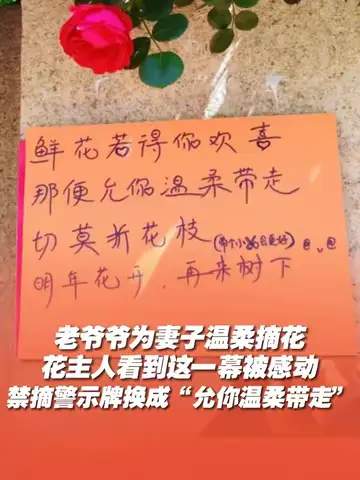 鲜花若得你欢喜
那便允你温柔带走
切莫折花枝
明年花开，再来树下
老爷爷为妻子温柔摘花
花主人看到这一幕被感动
禁摘警示牌换成“允你温柔带走”